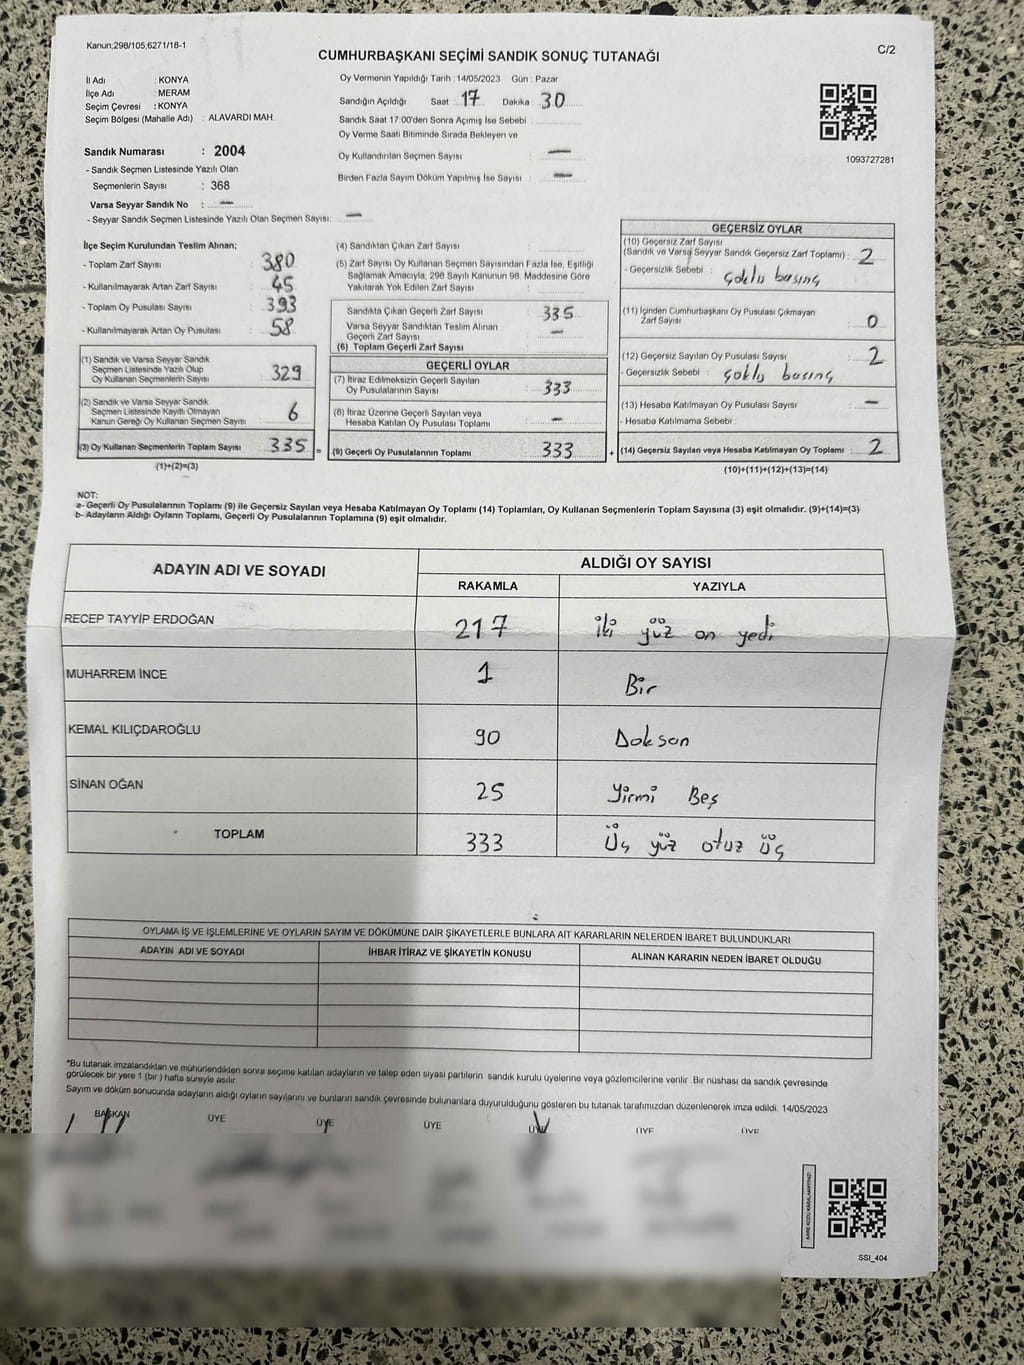 Kanun;298/105,6271/18-1
C/2
CUMHURBAŞKANI SEÇİMİ SANDIK SONUÇ TUTANAĞI
İl Adı : KONYA
İlçe Adı : MERAM
Seçim Çevresi : KONYA
Seçim Bölgesi (Mahalle Adı) : ALAVARDI MAH.
Sandık Numarası : 2004
- Sandık Seçmen Listesinde Yazılı Olan
Seçmenlerin Sayısı : 368
Varsa Seyyar Sandık No : —
- Seyyar Sandık Seçmen Listesinde Yazılı Olan Seçmen Sayısı: —
Oy Vermenin Yapıldığı Tarih : 14/05/2023 Gün : Pazar
Sandığın Açıldığı Saat : 17 Dakika : 30
Sandık Saat 17.00'den Sonra Açımış İse Sebebi :
Oy Verme Saati Bitiminde Sırada Bekleyen ve
Oy Kullandırılan Seçmen Sayısı : —
Birden Fazla Sayım Döküm Yapılmış İse Sayısı : —
1093727281
İlçe Seçim Kurulundan Teslim Alınan;
- Toplam Zarf Sayısı : 380
- Kullanılmayarak Artan Zarf Sayısı : 45
- Toplam Oy Pusulası Sayısı : 393
- Kullanılmayarak Artan Oy Pusulası : 58
(1) Sandık ve Varsa Seyyar Sandık
Seçmen Listesinde Yazılı Olup
Oy Kullanan Seçmenlerin Sayısı : 329
(2) Sandık ve Varsa Seyyar Sandık
Seçmen Listesinde Kayıtlı Olmayan
Kanun Gereği Oy Kullanan Seçmen Sayısı : 6
(3) Oy Kullanan Seçmenlerin Toplam Sayısı : 335
(1)+(2)=(3)
(4) Sandıktan Çıkan Zarf Sayısı :
(5) Zarf Sayısı Oy Kullanan Seçmen Sayısından Fazla İse, Eşitliği
Sağlamak Amacıyla, 298 Sayılı Kanunun 98. Maddesine Göre
Yakılarak Yok Edilen Zarf Sayısı :
Sandıkta Çıkan Geçerli Zarf Sayısı : 335
Varsa Seyyar Sandıktan Teslim Alınan
Geçerli Zarf Sayısı : —
(6) Toplam Geçerli Zarf Sayısı :
GEÇERLİ OYLAR
(7) İtiraz Edilmeksizin Geçerli Sayılan
Oy Pusulalarının Sayısı : 333
(8) İtiraz Üzerine Geçerli Sayılan veya
Hesaba Katılan Oy Pusulası Toplamı : —
= (9) Geçerli Oy Pusulalarının Toplamı : 333 +
GEÇERSİZ OYLAR
(10) Geçersiz Zarf Sayısı
(Sandık ve Varsa Seyyar Sandık Geçersiz Zarf Toplamı) : 2
- Geçersizlik Sebebi : çoklu basınç
(11) İçinden Cumhurbaşkanı Oy Pusulası Çıkmayan
Zarf Sayısı : 0
(12) Geçersiz Sayılan Oy Pusulası Sayısı : 2
- Geçersizlik Sebebi : çoklu basınç
(13) Hesaba Katılmayan Oy Pusulası Sayısı : —
- Hesaba Katılmama Sebebi :
(14) Geçersiz Sayılan veya Hesaba Katılmayan Oy Toplamı : 2
(10)+(11)+(12)+(13)=(14)
NOT:
a- Geçerli Oy Pusulalarının Toplamı (9) ile Geçersiz Sayılan veya Hesaba Katılmayan Oy Toplamı (14) Toplamları, Oy Kullanan Seçmenlerin Toplam Sayısına (3) eşit olmalıdır. (9)+(14)=(3)
b- Adayların Aldığı Oyların Toplamı, Geçerli Oy Pusulalarının Toplamına (9) eşit olmalıdır.
ADAYIN ADI VE SOYADI
ALDIĞI OY SAYISI
RAKAMLA YAZIYLA
RECEP TAYYİP ERDOĞAN 217 iki yüz on yedi
MUHARREM İNCE 1 Bir
KEMAL KILIÇDAROĞLU 90 Doksan
SİNAN OĞAN 25 Yirmi Beş
TOPLAM 333 Üç yüz otuz üç
OYLAMA İŞ VE İŞLEMLERİNE VE OYLARIN SAYIM VE DÖKÜMÜNE DAİR ŞİKAYETLERLE BUNLARA AİT KARARLARIN NELERDEN İBARET BULUNDUKLARI
ADAYIN ADI VE SOYADI İHBAR İTİRAZ VE ŞİKAYETİN KONUSU ALINAN KARARIN NEDEN İBARET OLDUĞU
*Bu tutanak imzalandıktan ve mühürlendikten sonra seçime katılan adayların ve talep eden siyasi partilerin sandık kurulu üyelerine veya gözlemcilerine verilir .Bir nüshası da sandık çevresinde
görülecek bir yere 1 (bir ) hafta süreyle asılır.
Sayım ve döküm sonucunda adayların aldığı oyların sayılarını ve bunların sandık çevresinde bulunanlara duyurulduğunu gösteren bu tutanak tarafımızdan düzenlenerek imza edildi. 14/05/2023
BAŞKAN ÜYE ÜYE ÜYE ÜYE ÜYE ÜYE
SSI_404